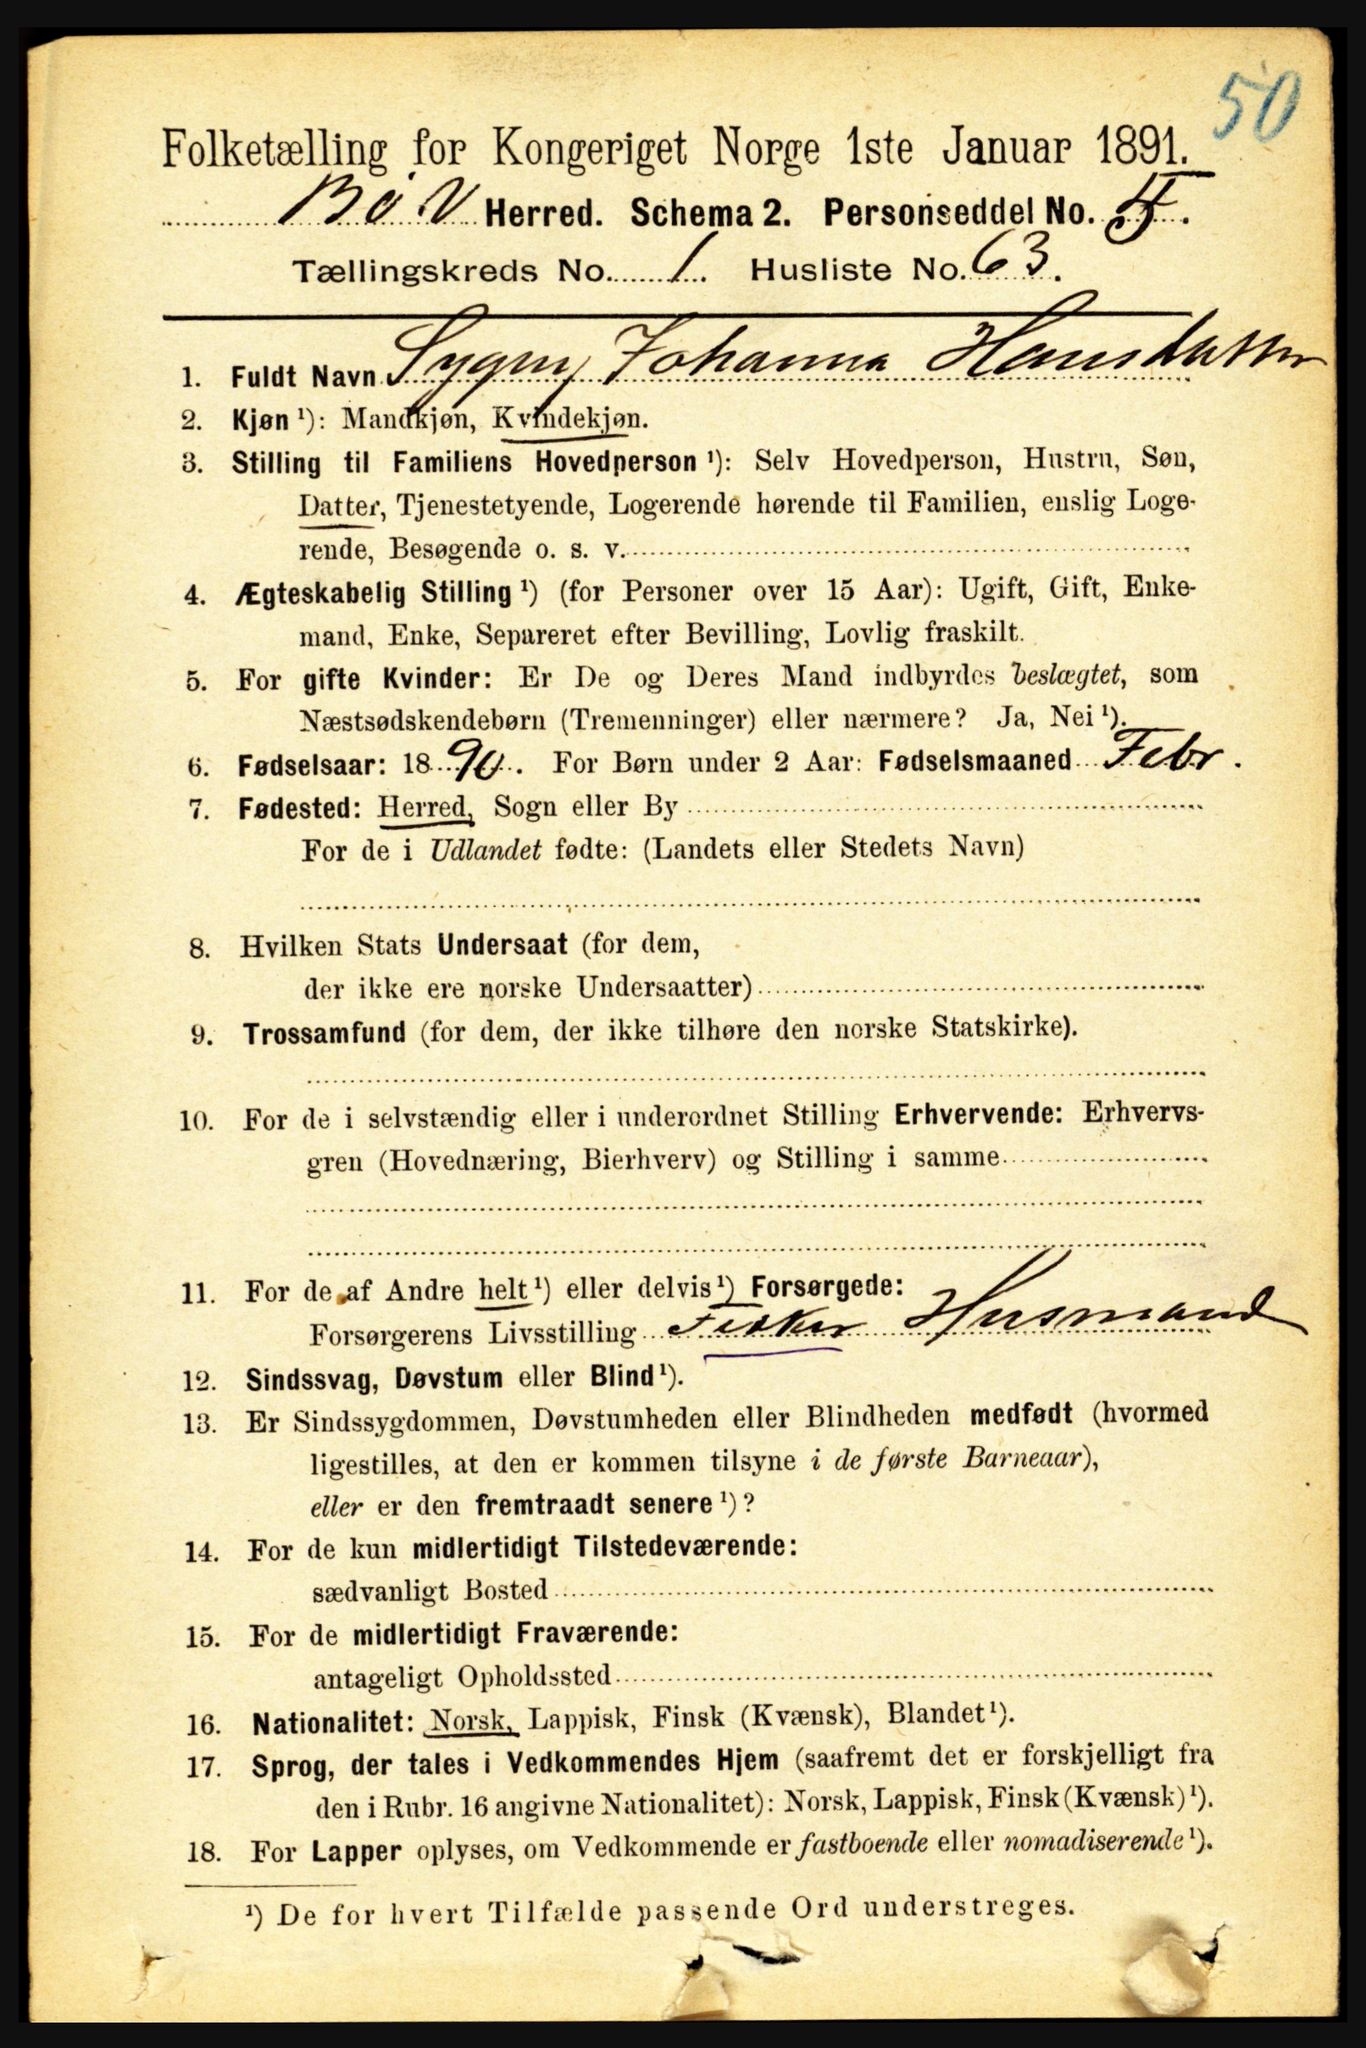 50
Folketælling for Kongeriget Norge 1ste Januar 1891.
Bø V Herred. Schema 2. Personseddel No. 5.
Tællingskreds No. 1. Husliste No. 63.
1. Fuldt Navn Sygny Johanna Hansdatter
2. Kjøn ¹): Mandkjøn, Kvindekjøn.
3. Stilling til Familiens Hovedperson ¹): Selv Hovedperson, Hustru, Søn,
Datter, Tjenestetyende, Logerende hørende til Familien, enslig Loge-
rende, Besøgende o. s. v.
4. Ægteskabelig Stilling ¹) (for Personer over 15 Aar): Ugift, Gift, Enke-
mand, Enke, Separeret efter Bevilling, Lovlig fraskilt.
5. For gifte Kvinder: Er De og Deres Mand indbyrdes beslægtet, som
Næstsødskendebørn (Tremenninger) eller nærmere? Ja, Nei ¹).
6. Fødselsaar: 1890. For Børn under 2 Aar: Fødselsmaaned Febr.
7. Fødested: Herred, Sogn eller By
For de i Udlandet fødte: (Landets eller Stedets Navn)
8. Hvilken Stats Undersaat (for dem,
der ikke ere norske Undersaatter)
9. Trossamfund (for dem, der ikke tilhøre den norske Statskirke).
10. For de i selvstændig eller i underordnet Stilling Erhvervende: Erhvervs-
gren (Hovednæring, Bierhverv) og Stilling i samme
11. For de af Andre helt ¹) eller delvis ¹) Forsørgede:
Forsørgerens Livsstilling Fisker Husmand
12. Sindssvag, Døvstum eller Blind ¹).
13. Er Sindssygdommen, Døvstumheden eller Blindheden medfødt (hvormed
ligestilles, at den er kommen tilsyne i de første Barneaar),
eller er den fremtraadt senere ¹)?
14. For de kun midlertidigt Tilstedeværende:
sædvanligt Bosted
15. For de midlertidigt Fraværende:
antageligt Opholdssted
16. Nationalitet: Norsk, Lappisk, Finsk (Kvænsk), Blandet ¹).
17. Sprog, der tales i Vedkommendes Hjem (saafremt det er forskjelligt fra
den i Rubr. 16 angivne Nationalitet): Norsk, Lappisk, Finsk (Kvænsk) ¹).
18. For Lapper oplyses, om Vedkommende er fastboende eller nomadiserende ¹).
¹) De for hvert Tilfælde passende Ord understreges.